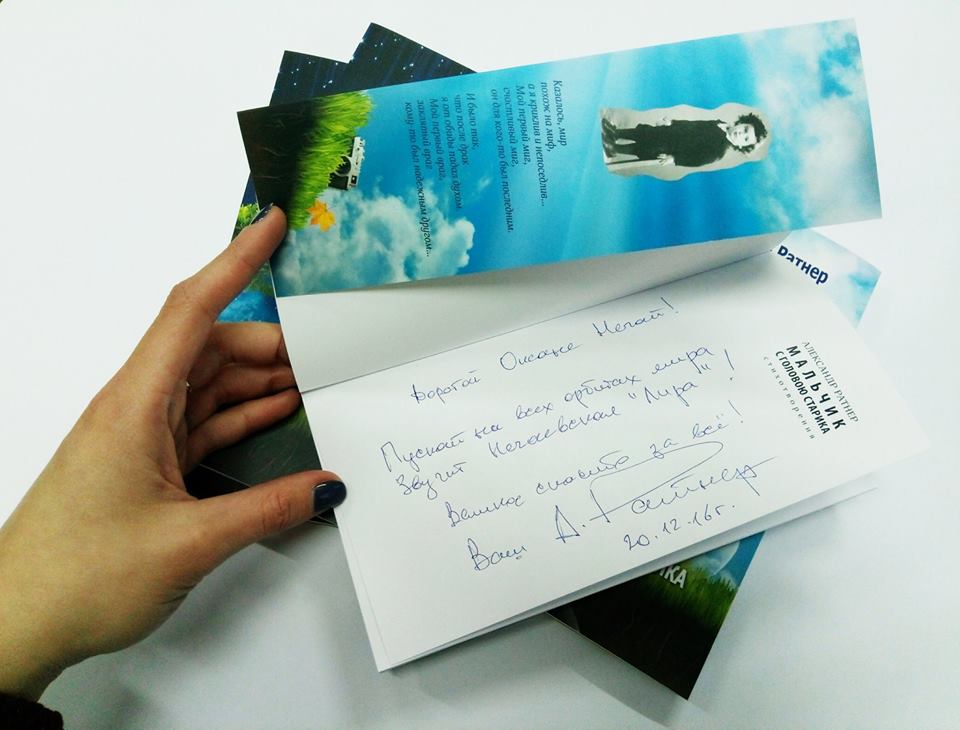 Казалось, мир
похож на миф,
а я криклив и непоседлив...
Мой первый миг,
счастливый миг,
он для кого-то был последним.
И было так,
что после драк
я от обиды падал духом
Мой первый враг,
заклятый враг
кому-то был надежным другом...
Ратнер
Дорогой Оксане Нечай!
Пускай на всех орбитах мира
Звучит Нечаевская "Лира"!
Великое спасибо за всё!
Ваш А. Ратнер
20.12.16г.
АЛЕКСАНДР РАТНЕР
МАЛЬЧИК
С ГОЛОВОЮ СТАРИКА
стихотворения
ИКА